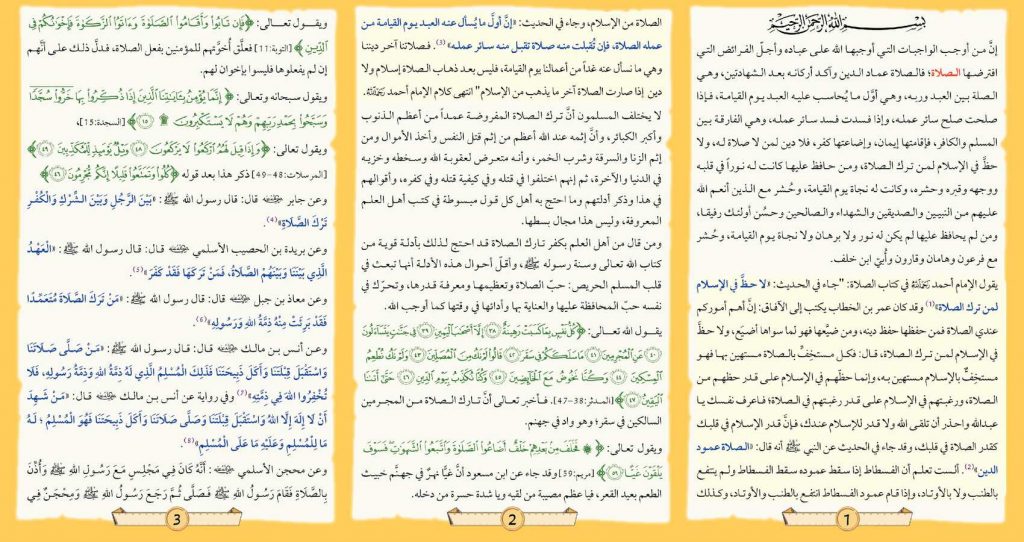 بسم الله الرحمن الرحيم
إنَّ من أوجب الواجبات التي أوجبها الله على عباده وأجلّ الفرائض التي
افترضها الصلاة؛ فالصلاة عماد الدين وآكد أركانه بعد الشهادتين، وهي
الصلة بين العبد وربه، وهي أوَّل ما يُحاسب عليه العبد يوم القيامة، فإذا
صلحت صلح سائر عمله، وإذا فسدت فسد سائر عمله، وهي الفارقة بين
المسلم والكافر، فإقامتها إيمان، وإضاعتها كفر، فلا دين لمن لا صلاة له، ولا
حظَّ في الإسلام لمن ترك الصلاة، ومن حافظ عليها كانت له نوراً في قلبه
ووجهه وقبره وحشره، وكانت له نجاة يوم القيامة، وحُشر مع الذين أنعم الله
عليهم من النبيين والصديقين والشهداء والصالحين وحسُن أولئك رفيقا،
ومن لم يحافظ عليها لم يكن له نور ولا برهان ولا نجاة يوم القيامة، وحُشر
مع فرعون وهامان وقارون وأُبيّ ابن خلف.
يقول الإمام أحمد رحمه الله في كتاب الصلاة: "جاء في الحديث: «لا حظَّ في الإسلام
لمن ترك الصلاة»(1) وقد كان عمر بن الخطاب يكتب إلى الآفاق: إنَّ أهم أموركم
عندي الصلاة فمن حفظها حفظ دينه، ومن ضيّعها فهو لما سواها أضيَع، ولا حظَّ
في الإسلام لمن ترك الصلاة، قال: فكل مستخفٍّ بالصلاة مستهين بها فهو
مستخِفٌّ بالإسلام مستهين به، وإنما حظّهم في الإسلام على قدر حظهم من
الصلاة، ورغبتهم في الإسلام على قدر رغبتهم في الصلاة؛ فاعرف نفسك يا
عبدالله واحذر أن تلقى الله ولا قدر للإسلام عندك، فإنَّ قدر الإسلام في قلبك
كقدر الصلاة في قلبك، وقد جاء في الحديث عن النبي ﷺ أنه قال: «الصلاة عمود
الدين»(2). ألست تعلم أن الفسطاط إذا سقط عموده سقط الفسطاط ولم ينتفع
بالطنب ولا بالأوتاد، وإذا قام عمود الفسطاط انتفع بالطنب والأوتاد، وكذلك
1
الصلاة من الإسلام، وجاء في الحديث: «إنَّ أول ما يُسأل عنه العبد يوم القيامة من
عمله الصلاة، فإن تُقبلت منه صلاة تقبل منه سائر عمله»(3). فصلاتنا آخر ديننا
وهي ما نسأل عنه غداً من أعمالنا يوم القيامة، فليس بعد ذهاب الصلاة إسلام ولا
دين إذا صارت الصلاة آخر ما يذهب من الإسلام" انتهى كلام الإمام أحمد رحمه الله.
لا يختلف المسلمون أنَّ ترك الصلاة المفروضة عمداً من أعظم الذنوب
وأكبر الكبائر، وأنَّ إثمه عند الله أعظم من إثم قتل النفس وأخذ الأموال ومن
إثم الزنا والسرقة وشرب الخمر، وأنه متعرض لعقوبة الله وسخطه وخزيه
في الدنيا والآخرة، ثم إنهم اختلفوا في قتله وفي كيفية قتله وفي كفره، وأقوالهم
في هذا وذكر أدلتهم وما احتج به أهل كل قول مبسوطة في كتب أهل العلم
المعروفة، وليس هذا مجال بسطها.
ومن قال من أهل العلم بكفر تارك الصلاة قد احتج لذلك بأدلة قوية من
كتاب الله تعالى وسنة رسوله ﷺ، وأقلّ أحوال هذه الأدلة أنها تبعث في
قلب المسلم الحريص: حبّ الصلاة وتعظيمها ومعرفة قدرها، وتحرّك في
نفسه حبّ المحافظة عليها والعناية بها وأدائها في وقتها كما أوجب الله.
يقول الله تعالى: ﴿كُلُّ نَفْسٍ بِمَا كَسَبَتْ رَهِينَةٌ ٣٨ إِلَّا أَصْحَابَ الْيَمِينِ ٣٩ فِي جَنَّاتٍ يَتَسَاءَلُونَ
٤٠ عَنِ الْمُجْرِمِينَ ٤١ مَا سَلَكَكُمْ فِي سَقَرَ ٤٢ قَالُوا لَمْ نَكُ مِنَ الْمُصَلِّينَ ٤٣ وَلَمْ نَكُ نُطْعِمُ
الْمِسْكِينَ ٤٤ وَكُنَّا نَخُوضُ مَعَ الْخَائِضِينَ ٤٥ وَكُنَّا نُكَذِّبُ بِيَوْمِ الدِّينِ ٤٦ حَتَّى أَتَانَا
الْيَقِينُ ٤٧﴾ [المدثر:38-47]. فـأخبر تعالى أنَّ تارك الصلاة من المجرمين
السالكين في سقر؛ وهو واد في جهنم.
ويقول تعالى: ﴿فَخَلَفَ مِنْ بَعْدِهِمْ خَلْفٌ أَضَاعُوا الصَّلَاةَ وَاتَّبَعُوا الشَّهَوَاتِ فَسَوْفَ
يَلْقَوْنَ غَيًّا ٥٩﴾ [مريم:59] وقد جاء عن ابن مسعود أنَّ غيًّا نهرٌ في جهنَّم خبيث
الطعم بعيد القعر، فيا عظم مصيبة من لقيه ويا شدة حسرة من دخله.
2
ويقول تعالى: ﴿فَإِنْ تَابُوا وَأَقَامُوا الصَّلَاةَ وَآتَوُا الزَّكَاةَ فَإِخْوَانُكُمْ فِي
الدِّينِ﴾ [التوبة:11] فعلَّق أُخوَّتهم للمؤمنين بفعل الصلاة، فدلَّ ذلك على أنَّهم
إن لم يفعلوها فليسوا بإخوان لهم.
ويقول سبحانه وتعالى: ﴿إِنَّمَا يُؤْمِنُ بِآيَاتِنَا الَّذِينَ إِذَا ذُكِّرُوا بِهَا خَرُّوا سُجَّدًا
وَسَبَّحُوا بِحَمْدِ رَبِّهِمْ وَهُمْ لَا يَسْتَكْبِرُونَ ۩ ١٥﴾ [السجدة:15]،
ويقول تعالى: ﴿وَإِذَا قِيلَ لَهُمُ ارْكَعُوا لَا يَرْكَعُونَ ٤٨ وَيْلٌ يَوْمَئِذٍ لِلْمُكَذِّبِينَ ٤٩﴾
[المرسلات:48-49] ذكر هذا بعد قوله ﴿كُلُوا وَتَمَتَّعُوا قَلِيلًا إِنَّكُمْ مُجْرِمُونَ ٤٦﴾
وعن جابر رضي الله عنه قال: قال رسول الله ﷺ: «بَيْنَ الرَّجُلِ وَبَيْنَ الشِّرْكِ وَالْكُفْرِ
تَرْكَ الصَّلَاةِ»(4).
وعن بريدة بن الحصيب الأسلمي رضي الله عنه قال: قال رسول الله ﷺ: «الْعَهْدُ
الَّذِي بَيْنَنَا وَبَيْنَهُمُ الصَّلَاةُ، فَمَنْ تَرَكَهَا فَقَدْ كَفَرَ»(5).
وعن معاذ بن جبل رضي الله عنه قال: قال رسول الله ﷺ: «مَنْ تَرَكَ الصَّلَاةَ مُتَعَمِّدًا
فَقَدْ بَرِئَتْ مِنْهُ ذِمَّةُ اللَّهِ وَرَسُولِهِ»(6).
وعن أنس بن مالك رضي الله عنه قال: قال رسول الله ﷺ: «مَنْ صَلَّى صَلَاتَنَا
وَاسْتَقْبَلَ قِبْلَتَنَا وَأَكَلَ ذَبِيحَتَنَا فَذَلِكَ الْمُسْلِمُ الَّذِي لَهُ ذِمَّةُ اللَّهِ وَذِمَّةُ رَسُولِهِ، فَلَا
تُخْفِرُوا اللَّهَ فِي ذِمَّتِهِ»(7) وفي رواية عن أنس بن مالك رضي الله عنه قال: «مَنْ شَهِدَ
أَنْ لَا إِلَهَ إِلَّا اللَّهُ وَاسْتَقْبَلَ قِبْلَتَنَا وَصَلَّى صَلَاتَنَا وَأَكَلَ ذَبِيحَتَنَا فَهُوَ الْمُسْلِمُ؛ لَهُ
مَا لِلْمُسْلِمِ وَعَلَيْهِ مَا عَلَى الْمُسْلِمِ»(8).
وعن محجن الأسلمي رضي الله عنه: أَنَّهُ كَانَ فِي مَجْلِسٍ مَعَ رَسُولِ اللَّهِ ﷺ وَأُذِّنَ
بِالصَّلَاةِ فَقَامَ رَسُولُ اللَّهِ ﷺ فَصَلَّى ثُمَّ رَجَعَ رَسُولُ اللَّهِ ﷺ وَمِحْجَنٌ فِي
3